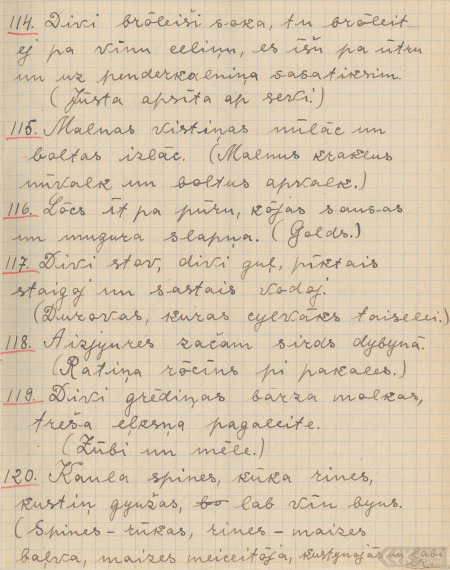 114. Divi brōleiši soka, tu brōleit
ej pa vīnu celiņu, es īšu pa ūtru
un uz penderkalniņa sasatiksim.
(Jūsta apsīta ap sevi.)
115. Malnas vistiņas nūlāc un
boltas izlāc. (Malnus kraklus
nūvalk un boltus apvalk.)
116. Lōcs īt pa pūru, kōjas sausas
un mugura slapņa. (Golds.)
117. Divi stov, divi guļ, pīktais
staigoj un sastais vodoj.
(Durovas, kuras cylvāks taiselei.)
118. Aizjyures začam sirds dybynā.
(Ratiņa rōcīns pi pakales.)
119. Divi grēdiņas bārza malkas,
treša eļksņa pagaleite.
(Zūbi un mēle.)
120. Kaula spines, kūka rines,
kustiņ gyužas, bo lab vīn byus.
(Spines - rūkas, rines - maizes
baļva, maizes meiceitōja, kustynojās un labi